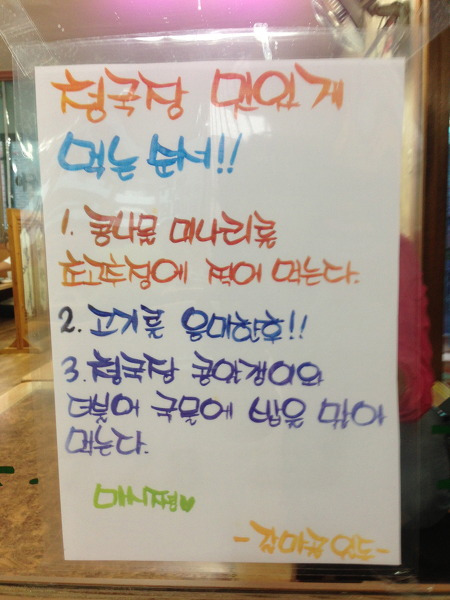 청국장 맛있게
먹는 순서!!
1. 콩나물 미나리를
초고추장에 찍어 먹는다.
2. 고기를 음미한후!!
3. 청국장 콩알갱이와
더불어 국물에 밥을 말아
먹는다.